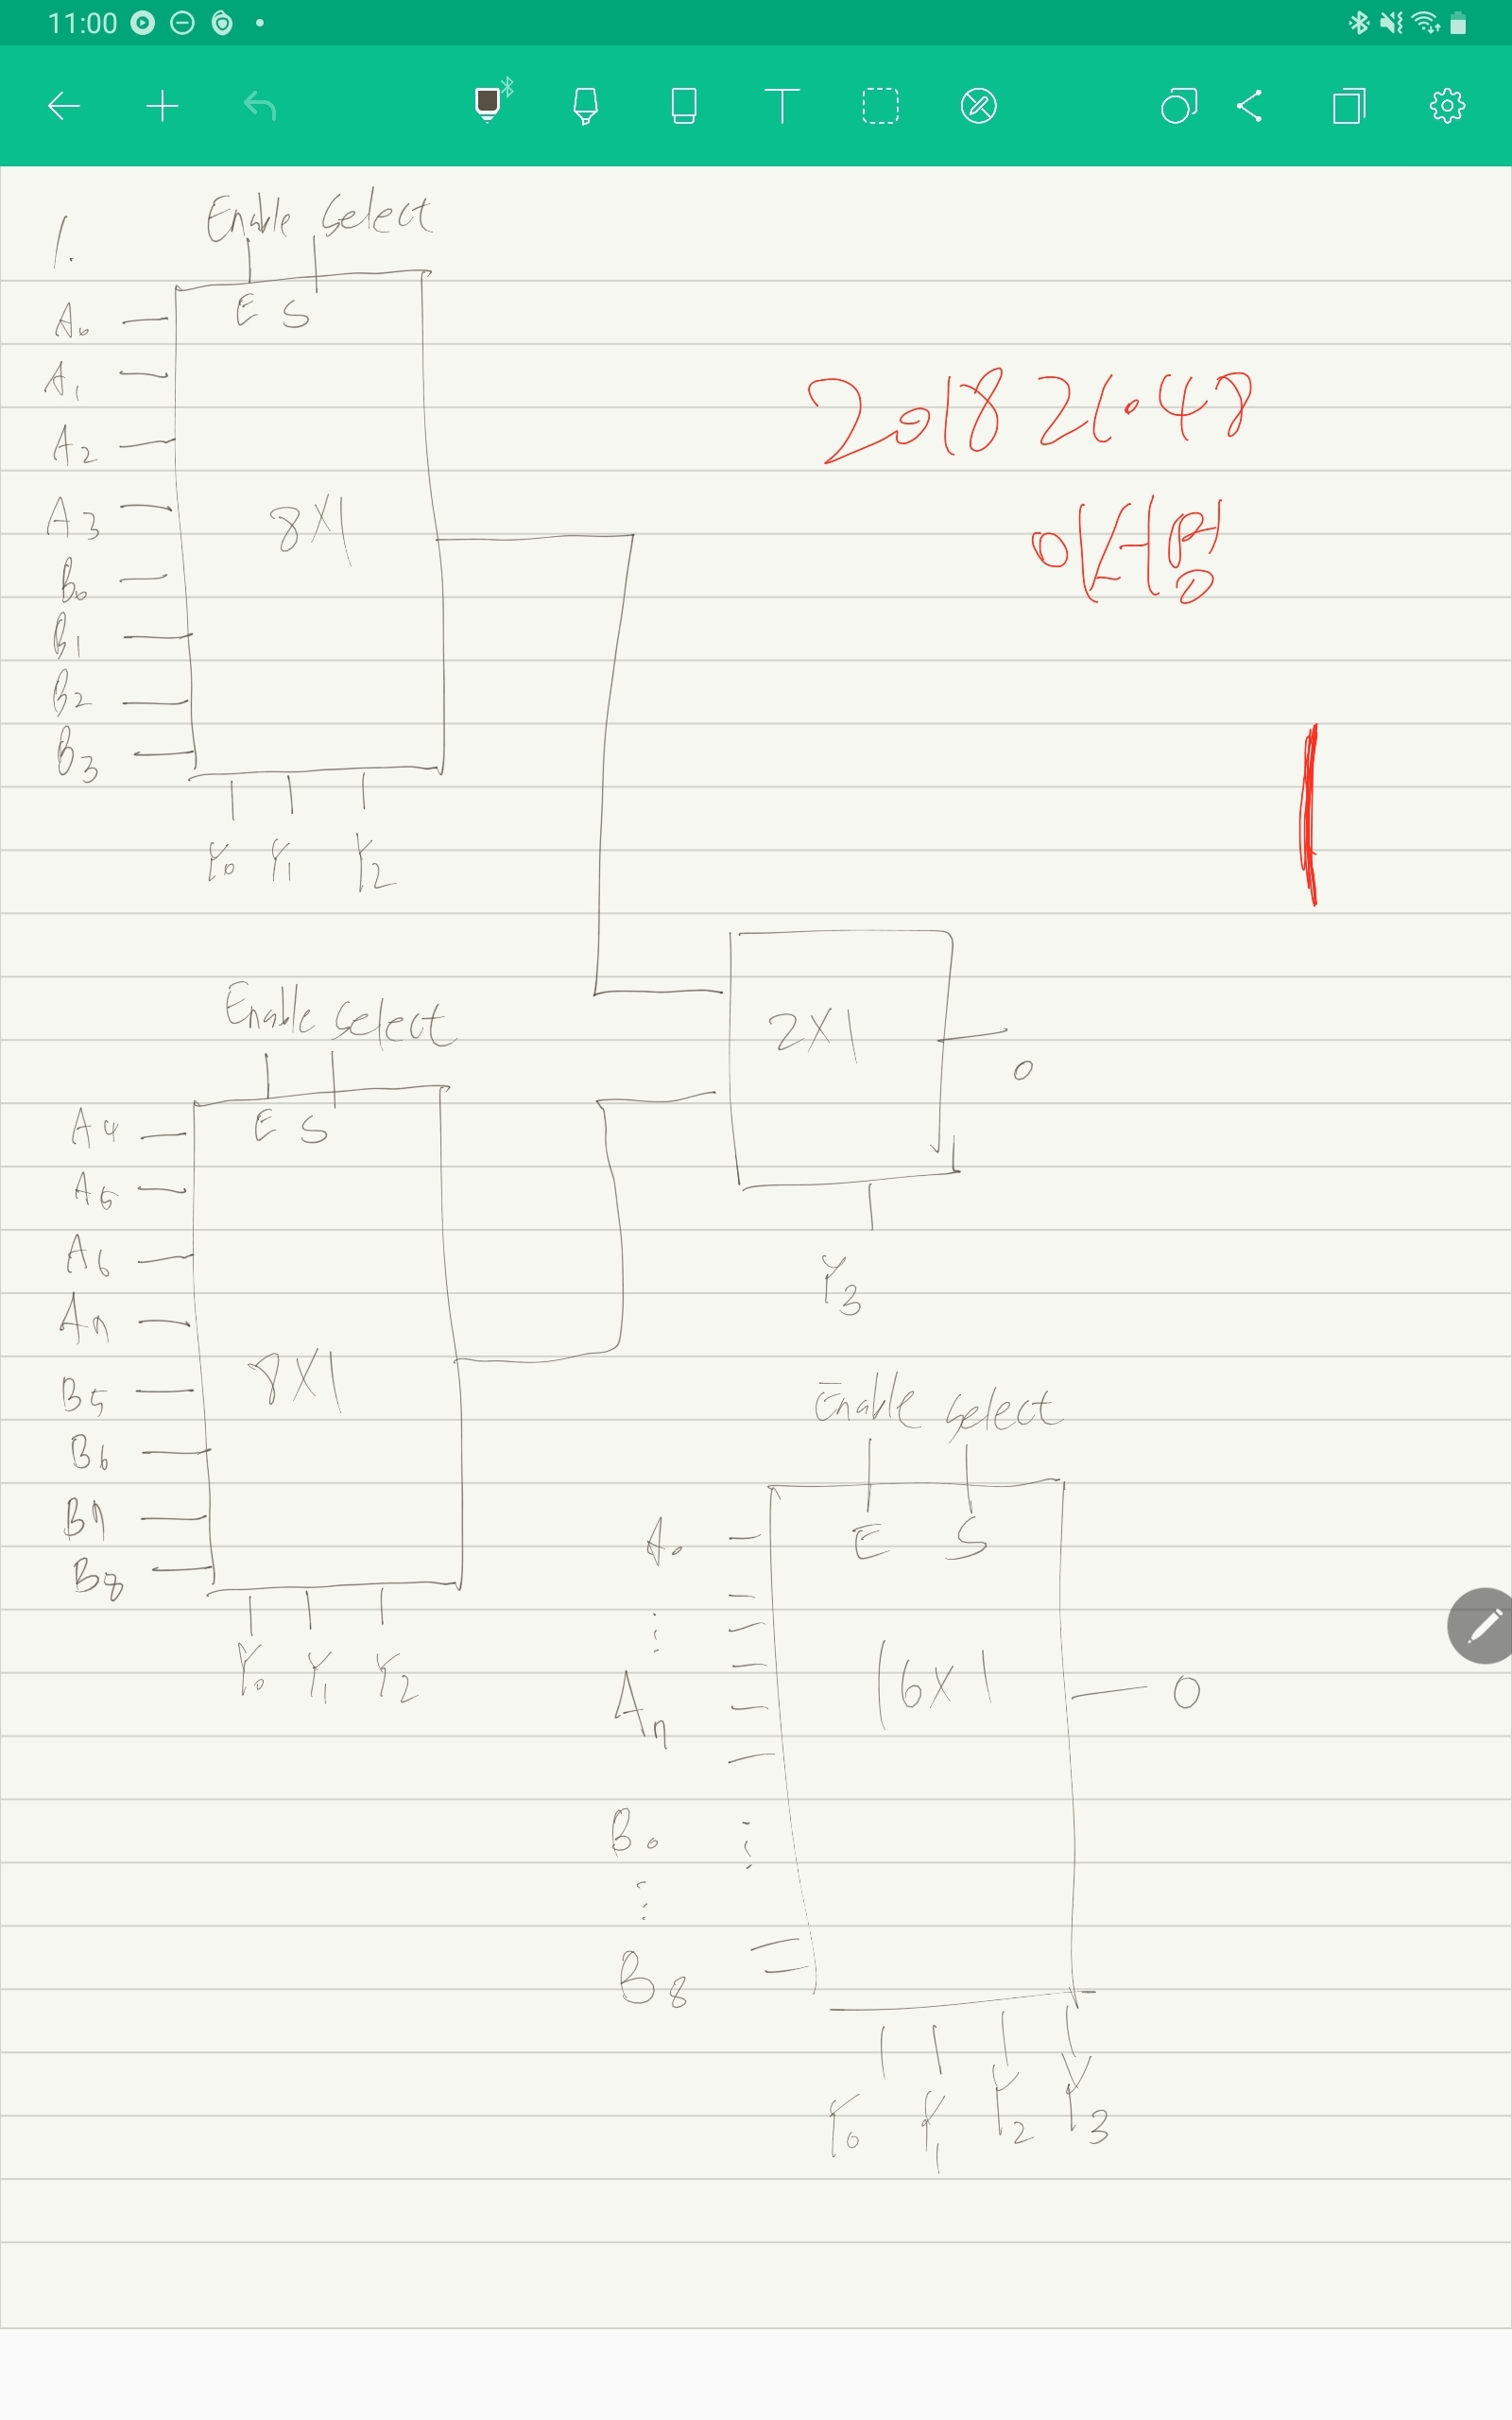 11:00
1.
Enable Select
E S
A0
A1
A2
A3
8X1
B0
B1
B2
B3
Y0 Y1 Y2
2018 21048
Enable Select
E S
A4
A5
A6
A7
8X1
B5
B6
B7
B8
Y0 Y1 Y2
2X1
0
Y3
Enable Select
E S
A0
⋮
An
16X1
0
B0
⋮
B8
Y0 Y1 Y2 Y3